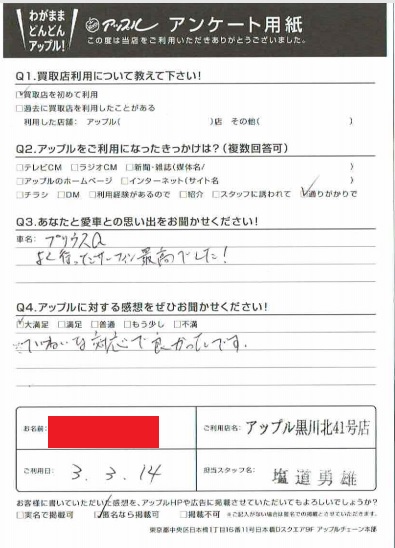 わがまま
どんどん
アップル!
アップル アンケート用紙
この度は当店をご利用いただきありがとうございました。
Q1.買取店利用について教えて下さい!
☑買取店を初めて利用
□過去に買取店を利用したことがある
利用した店舗: アップル( )店 その他( )
Q2.アップルをご利用になったきっかけは?(複数回答可)
□テレビCM □ラジオCM □新聞・雑誌(媒体名/ )
□アップルのホームページ □インターネット(サイト名 )
□チラシ □DM □利用経験があるので □紹介 □スタッフに誘われて ☑通りがかりで
Q3.あなたと愛車との思い出をお聞かせください!
車名: プリウスα
よく行ったサーフィン最高でした!
Q4.アップルに対する感想をぜひお聞かせください!
☑大満足 □満足 □普通 □もう少し □不満
ていねいな対応で良かったです。
お名前:
ご利用店名: アップル黒川北41号店
ご利用日: 3.3.14
担当スタッフ名: 塩道勇雄
お客様に書いていただいた感想を、アップルHPや広告に掲載させていただいてもよろしいでしょうか?
□実名で掲載可 ☑匿名なら掲載可 □掲載不可 ※ご記入がない場合は匿名での掲載とさせていただきます。
東京都中央区日本橋1丁目16番11号日本橋Dスクエア9F アップルチェーン本部